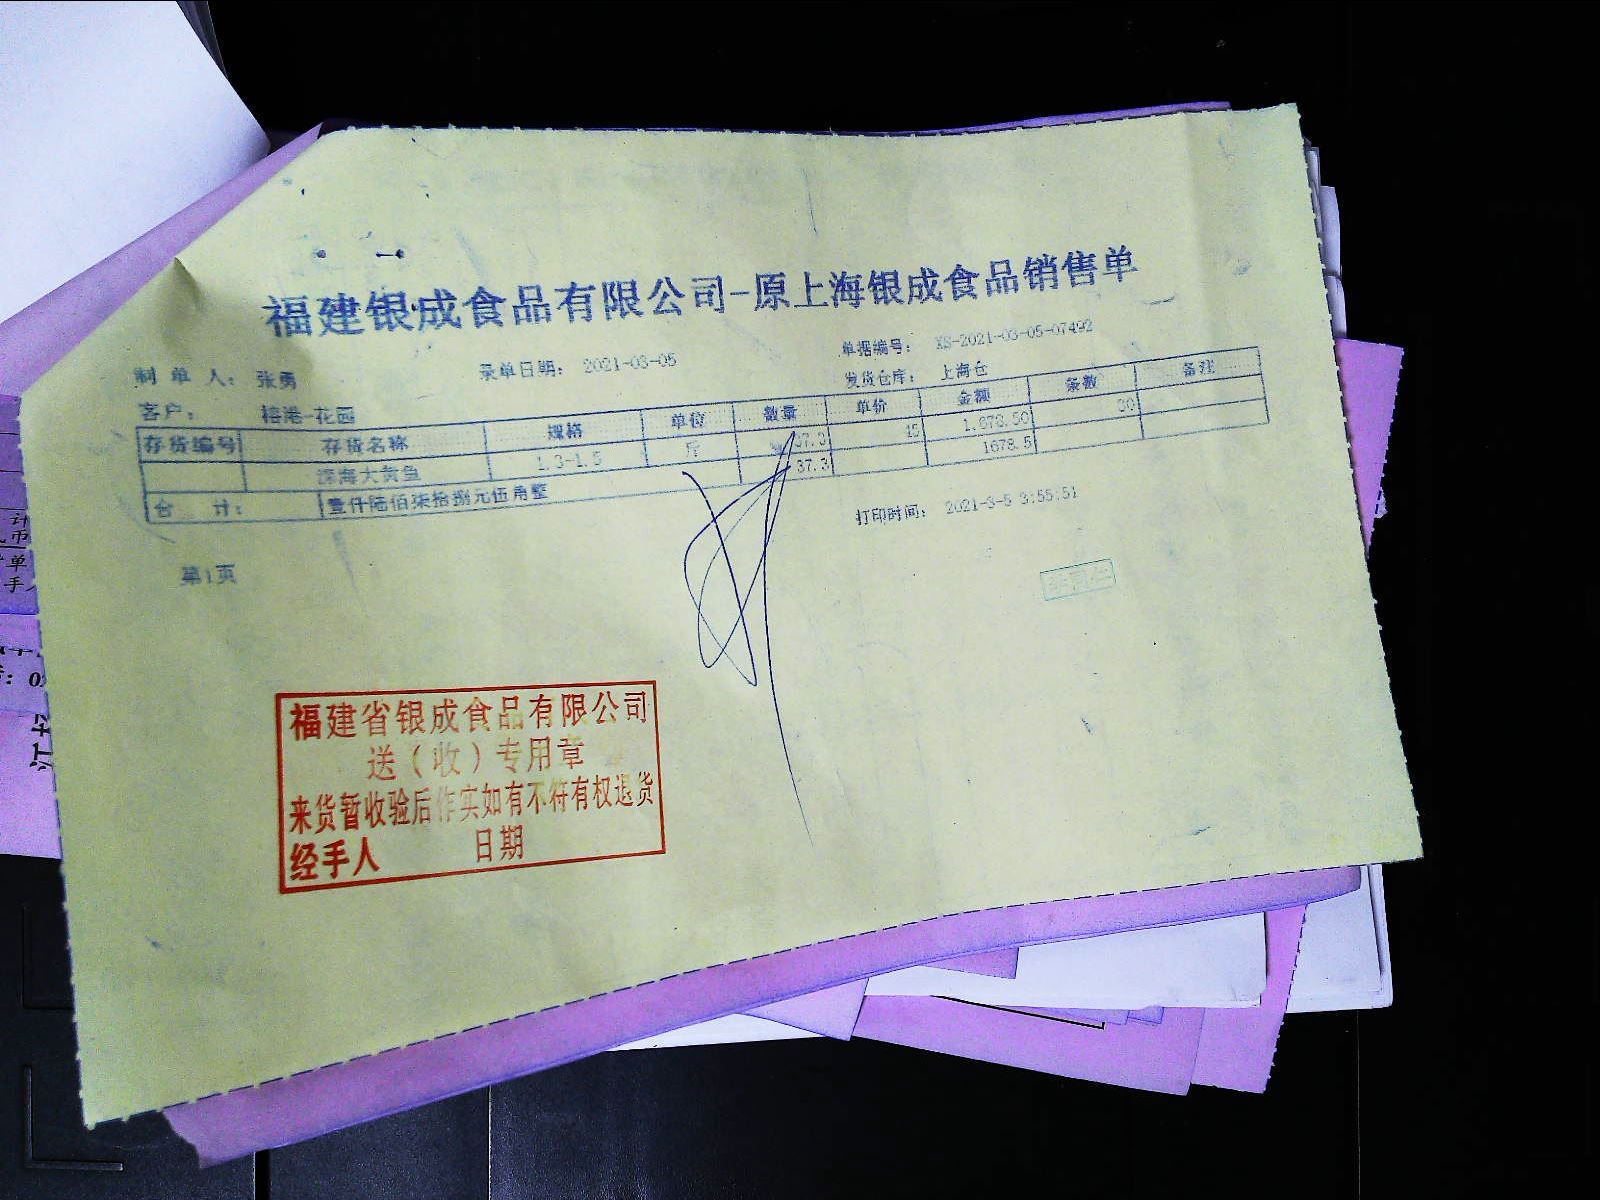 福建银成食品有限公司-原上海银成食品销售单
制 单 人： 张勇 录单日期： 2021-03-05 单据编号： XS-2021-03-05-07492
客户： 榕港-花园 发货仓库： 上海仓
存货编号 存货名称 规格 单位 数量 单价 金额 条数 备注
深海大黄鱼 1.3-1.5 斤 37.3 45 1,678.50 30
合 计： 壹仟陆佰柒拾捌元伍角整 37.3 1678.5
打印时间： 2021-3-5 3:55:51
第1页
福建省银成食品有限公司
送（收）专用章
来货暂收验后作实如有不符有权退货
经手人 日期